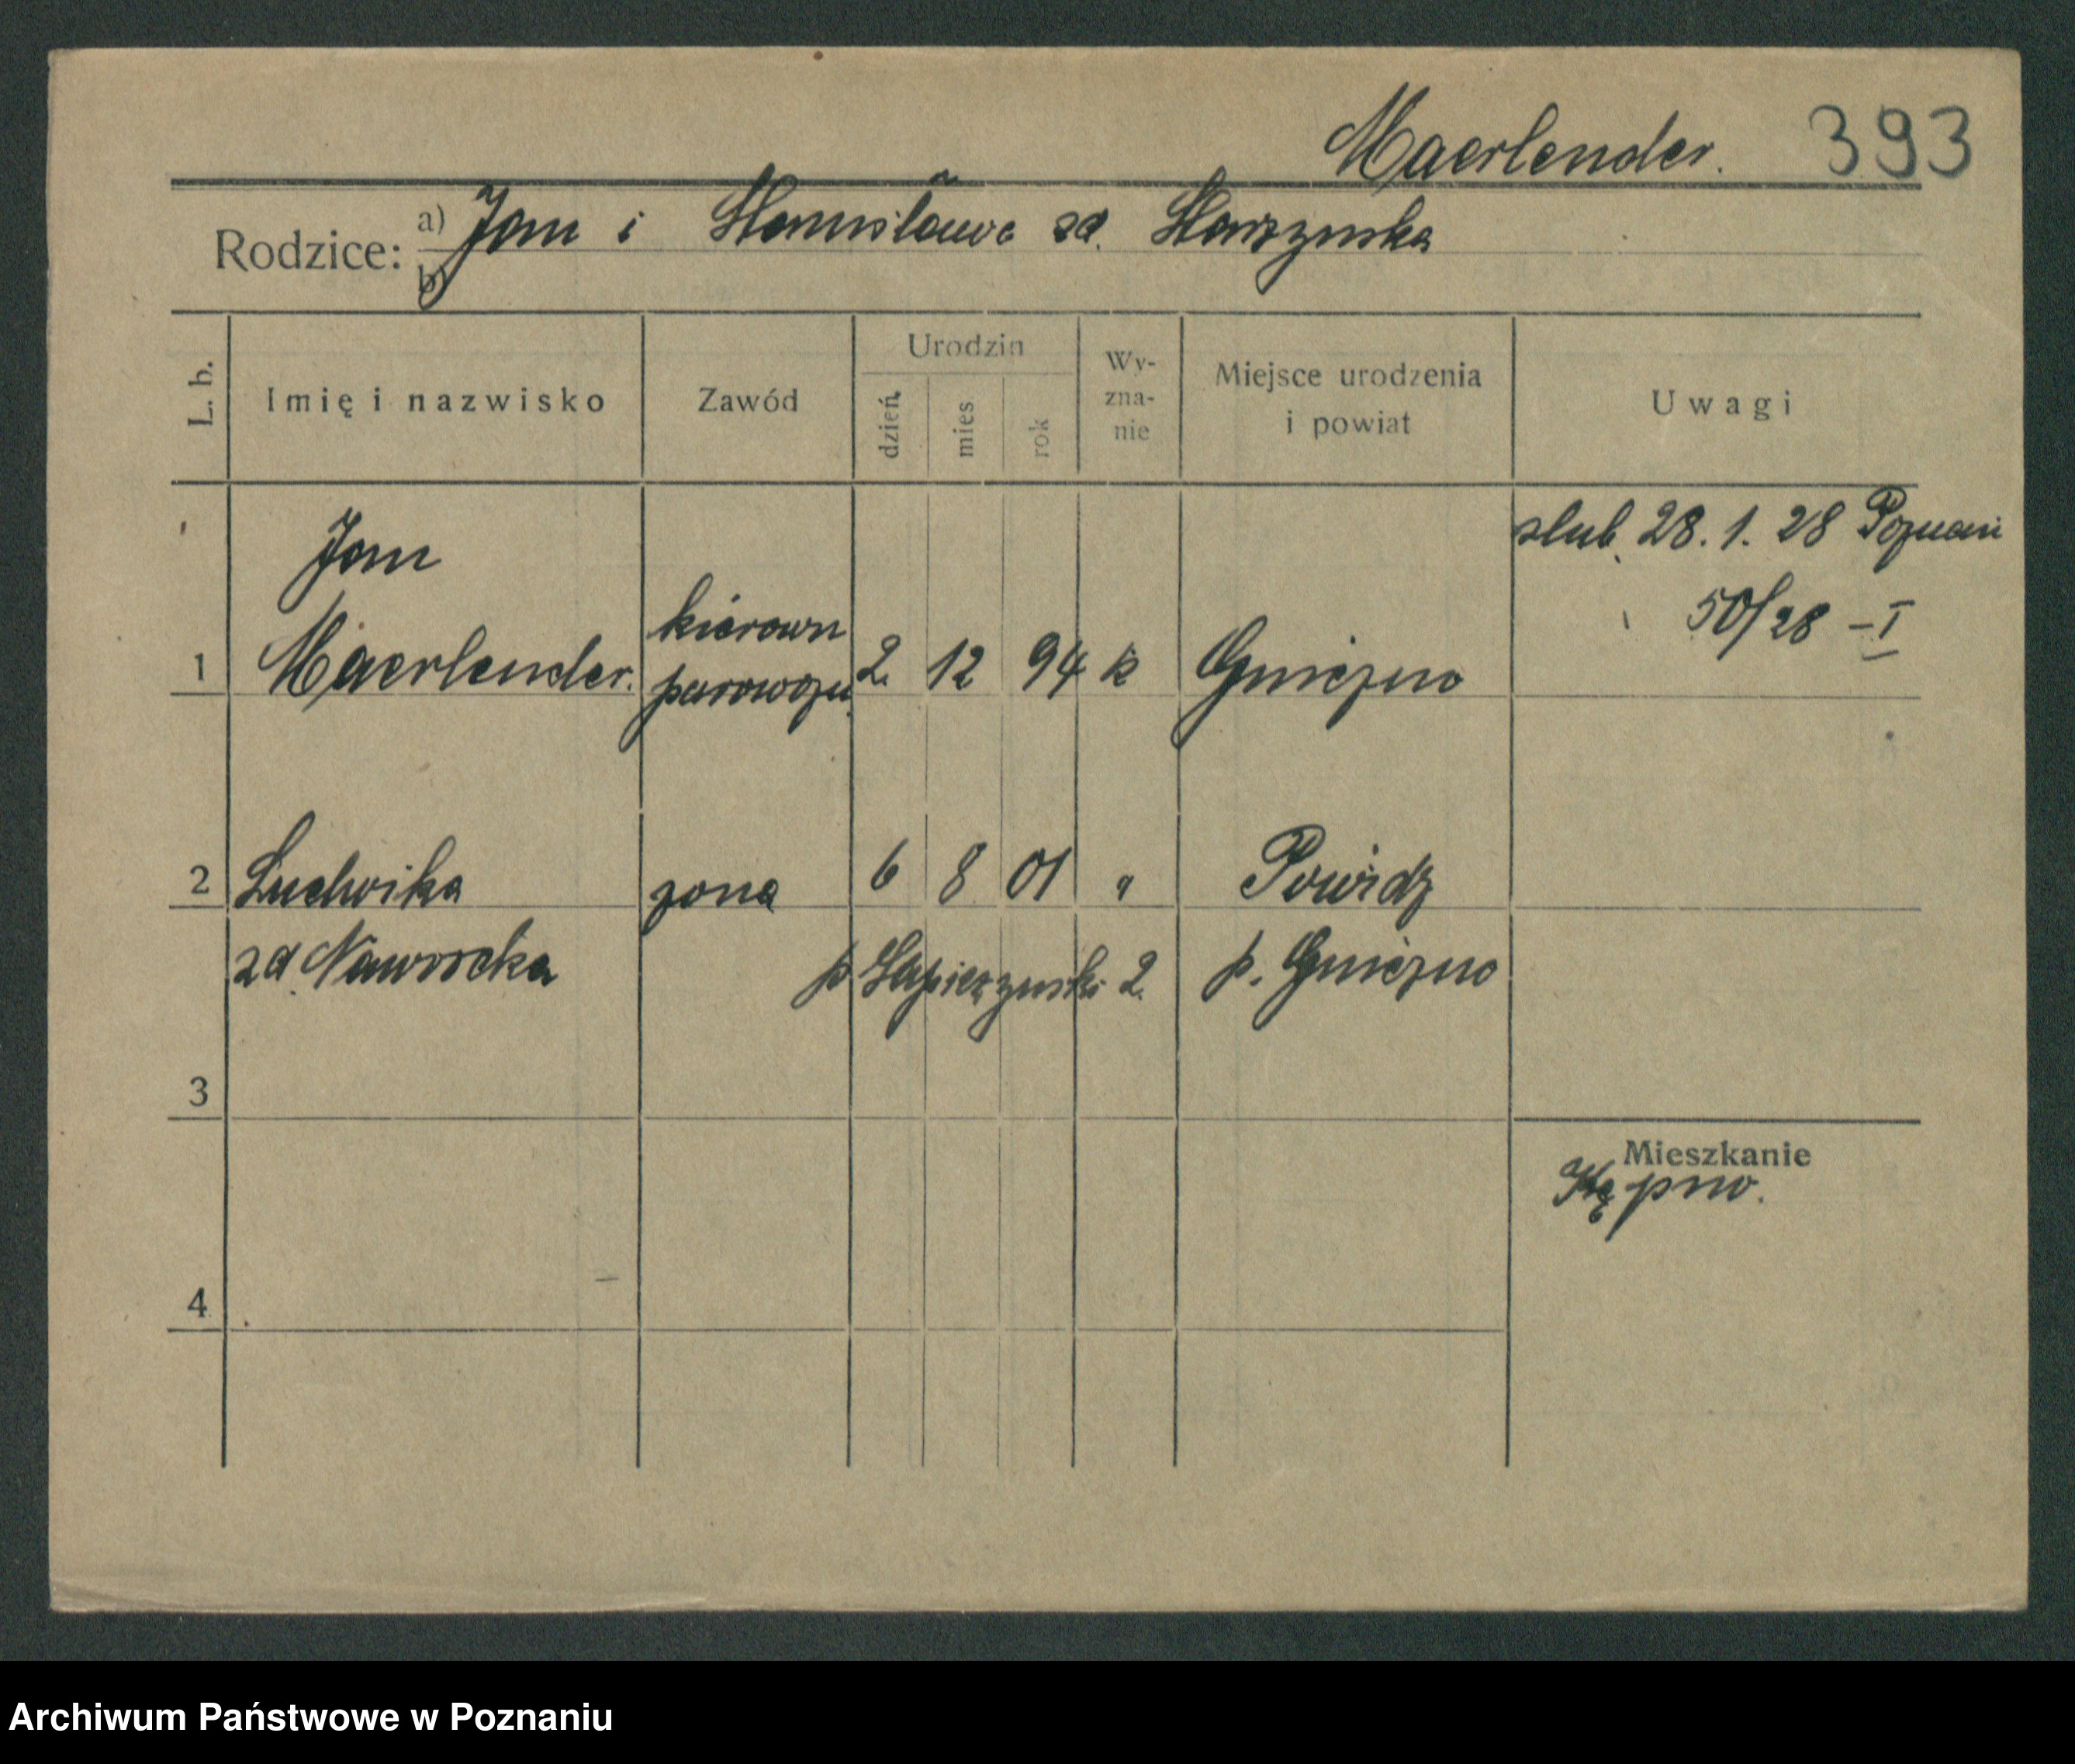 Maerlender. 393
Rodzice: a) Jan i Stanisława zd. Starzynska
b)
L. b. Imię i nazwisko Zawód Urodzin dzień mies rok Wy-zna-nie Miejsce urodzenia i powiat Uwagi
slub. 28. 1. 28 Poznań
50/28 – I
Jan
1 Maerlender. kierown parowozu 2. 12 94 k Gniezno
2 Ludwika zona 6 8 01 " Powidz
zd. Nawrocka p. 2. p. Gniezno
3
Mieszkanie
Kępno.
4
Archiwum Państwowe w Poznaniu